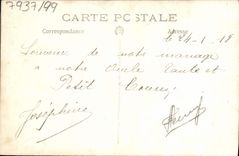 7937/99
CARTE POSTALE
Correspondance
Adresse
le 24-1-18
Souvenir de notre mariage
a notre Oncle Tante et
Petit
Joséphine